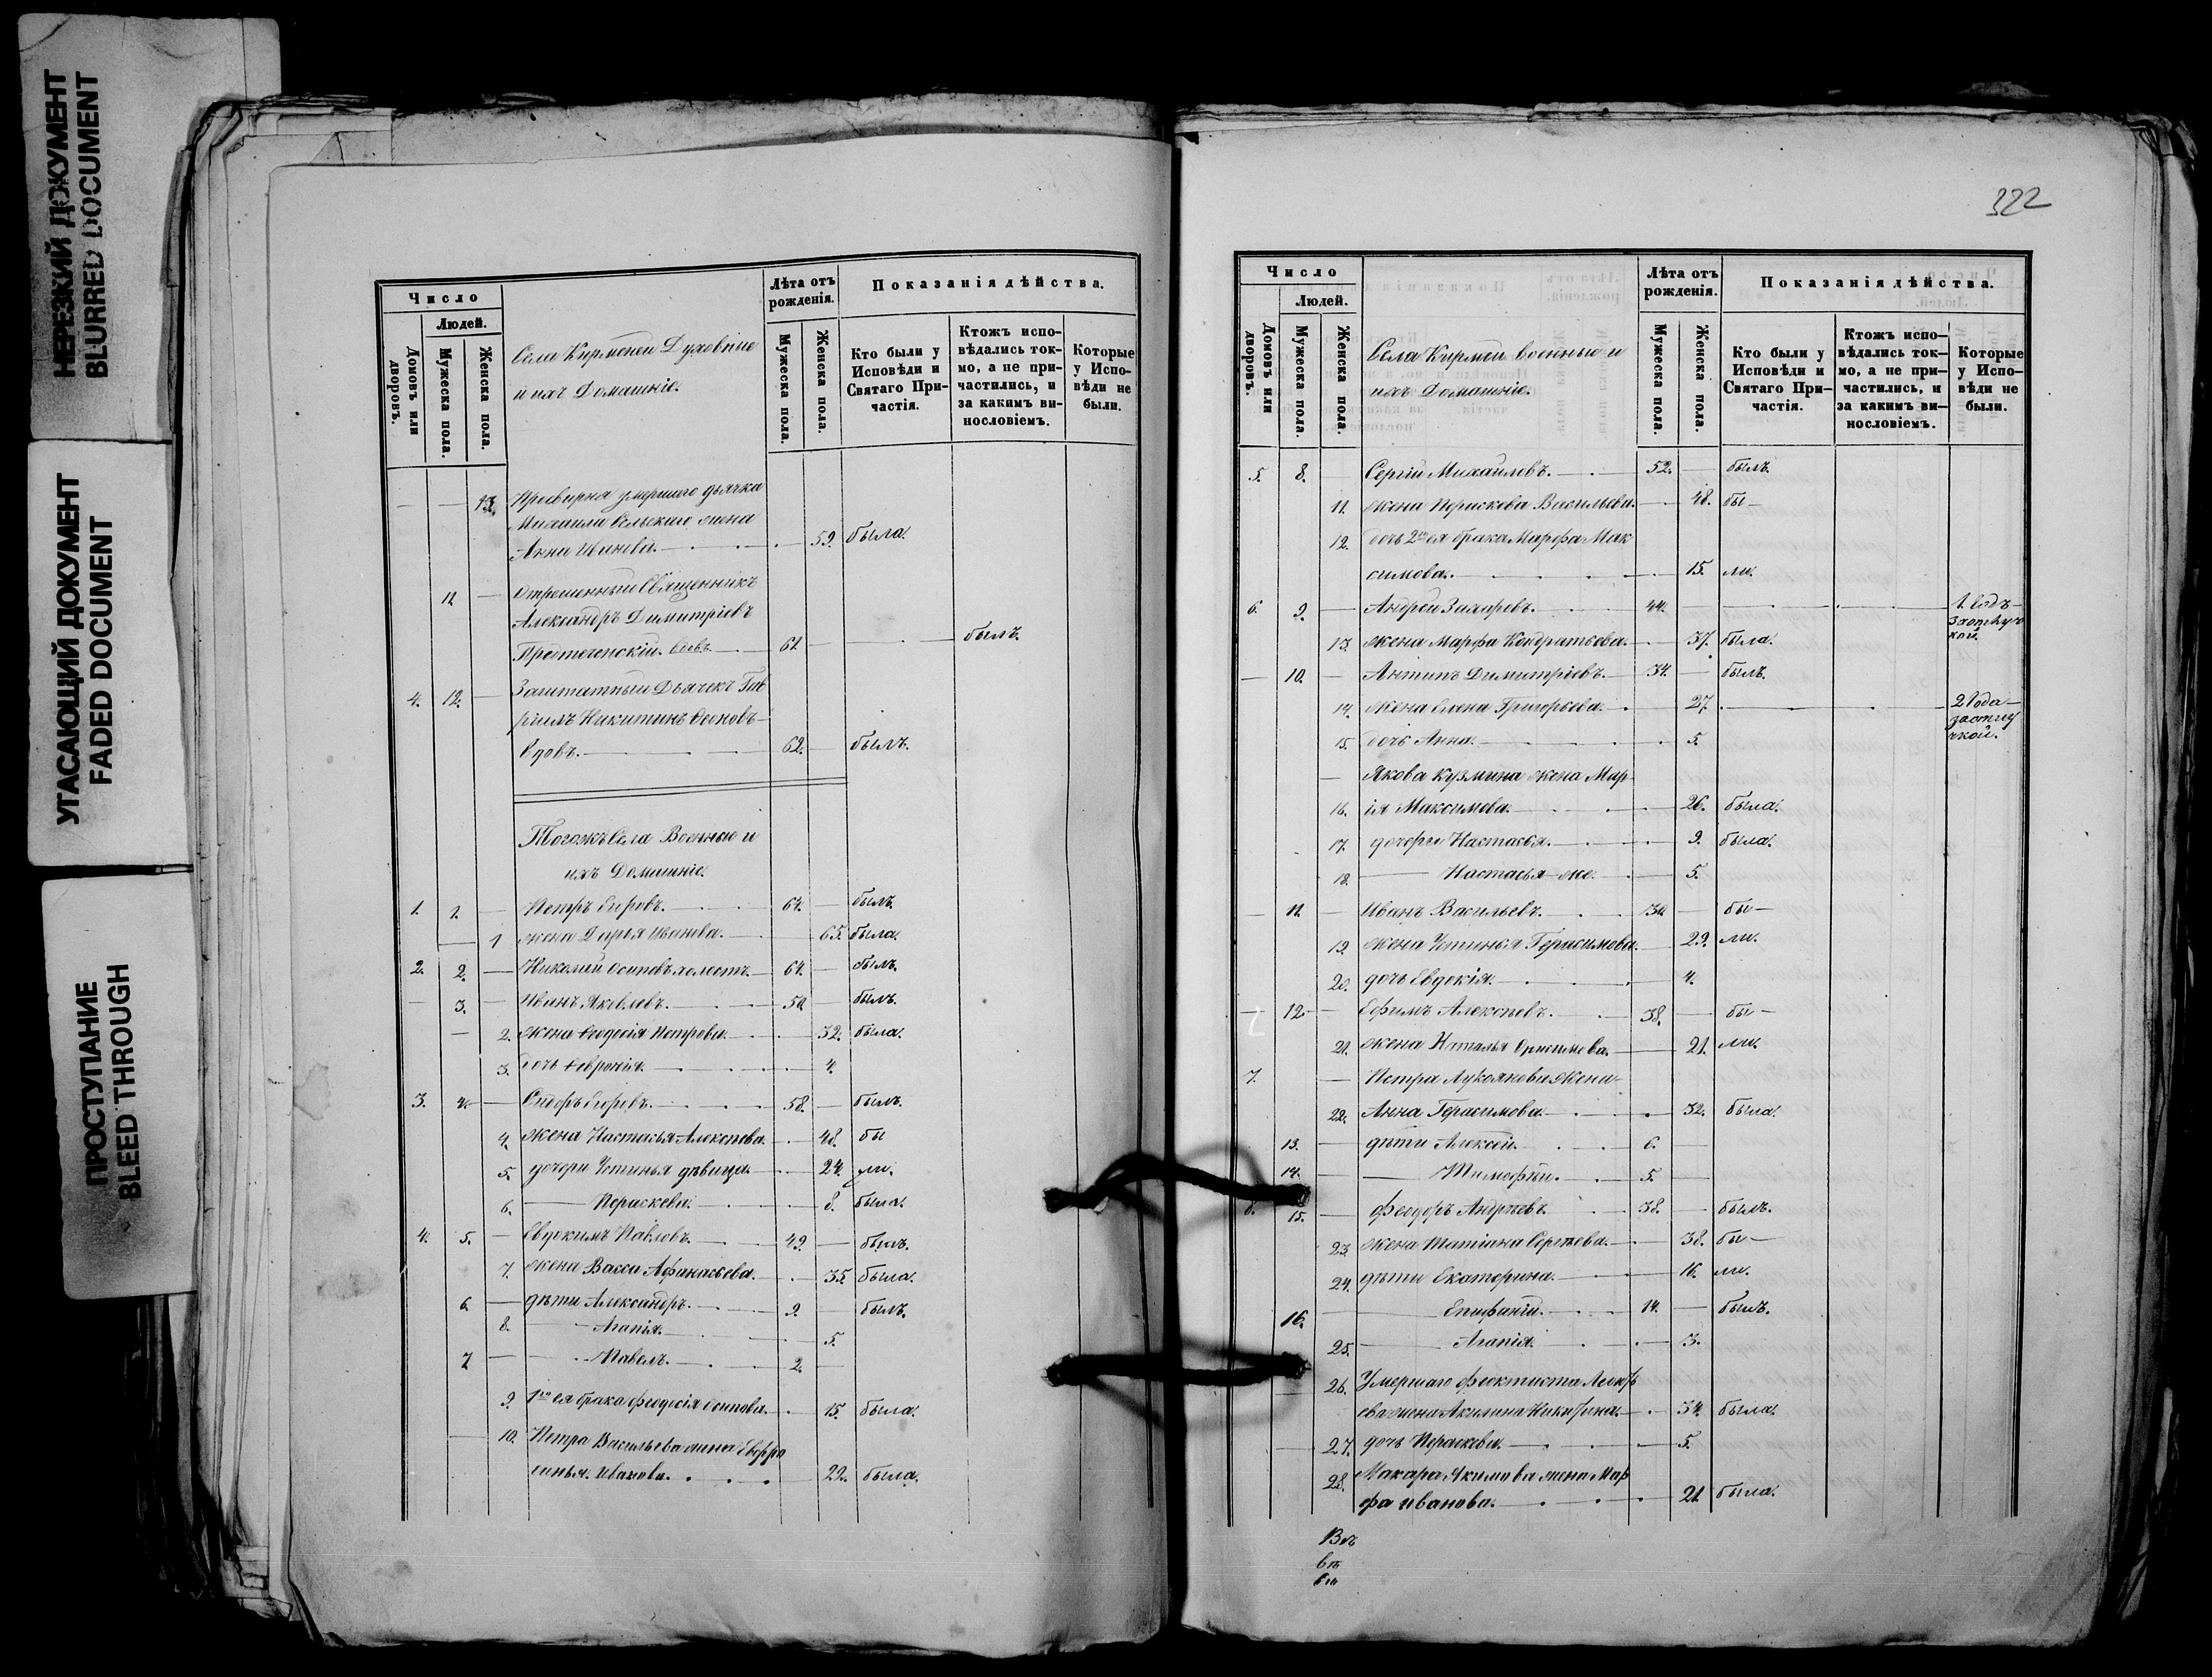 НЕРЕЗКИЙ ДОКУМЕНТ
BLURRED DOCUMENT
УГАСАЮЩИЙ ДОКУМЕНТ
FADED DOCUMENT
ПРОСТУПАНИЕ
BLEED THROUGH
Число
Людей.
Домовъ или дворовъ.
Мужеска пола.
Женска пола.
Села Кирмоней Духовные
и ихъ Домашніе.
Лѣта отъ рожденія.
Мужеска пола.
Женска пола.
Показанія дѣйства.
Кто были у Исповѣди и Святаго Причастія.
Ктожъ исповѣдались токмо, а не причастились, и за какимъ винословіемъ.
Которые у Исповѣди не были.
13. Просвирня умершего дьячка
Михаила Сельскаго жена
Анна Иванова. 59. была.
11. Отрешенный Священникъ
Александръ Димитріевъ
Предтеченскій. вдовъ 61. былъ.
4. 12. Заштатный Дьячекъ Гав
ріилъ Никитинъ
Вдовъ. 62. былъ.
Тогожъ Села Военные и
ихъ Домашніе.
1. 1. Петръ 64. былъ.
1 жена Дарья Иванова. 65. была.
2. 2. Николай Осиповъ холостъ. 64. былъ.
3. Иванъ Яковлевъ. 50. былъ.
2. жена Ѳеодосія Петрова. 32. была.
3. дочь Ѳевронія. 4.
3. 4. Сидоръ Егоровъ. 58. былъ.
4. жена Настасья Алексѣева. 48. бы
5. дочери Устинья дѣвица. 24. ли.
6. Параскева. 8. была.
4. 5. Евдокимъ Павловъ. 49. былъ.
7. жена Васса Афанасьева. 35. была.
6. дѣти Александръ. 9. былъ.
8. Агапія. 5.
7 Павелъ. 2.
9. 1го ея брака Феодосія Осипова. 15. была.
10. Петра Васильева жена Евфро
синья Иванова. 22. была.
322
Число
Людей.
Домовъ или дворовъ.
Мужеска пола.
Женска пола.
Села Кирмей военные и
ихъ Домашніе.
Лѣта отъ рожденія.
Мужеска пола.
Женска пола.
Показанія дѣйства.
Кто были у Исповѣди и Святаго Причастія.
Ктожъ исповѣдались токмо, а не причастились, и за какимъ винословіемъ.
Которые у Исповѣди не были.
5. 8. Сергій Михайловъ. 52. былъ
11. жена Параскева Васильева. 48. бы-
12. дочь 2го ея брака Марфа Мак
симова. 15. ли.
6. 9. Андрей Захаровъ. 44. 1. годъ-
за отлуч
кой.
13. жена Марфа Кондратьева. 37. была.
10. Антипъ Димитріевъ. 34. былъ.
14. жена Елена Григорьева. 27. 2 Года-
за отлу
чкой.
15. дочь Анна. 5.
Якова Кузмина жена Мар-
16. ія Максимова. 26. была.
17. дочери Настасья. 9. была.
18. Настасья же. 5.
11. Иванъ Васильевъ. 30. бы-
19. жена Устинья Герасимова. 29. ли.
20. дочь Евдокія. 4.
12. Ефимъ Алексѣевъ. 38. бы-
21. жена Наталья 21. ли.
7. Петра Лукоянова жена
22. Анна Герасимова. 32. была.
13. дѣти Алексѣй. 6.
14. Тимофѣй. 5.
8. 15. Феодоръ Андреевъ. 38. былъ.
23. жена Татіана Сергѣева. 38. бы-
24. дѣти Екатерина. 16. ли.
16. Епифаній. 14. былъ.
25. Агапія. 3.
26. Умершаго Феоктиста Алексѣ
ева жена Акилина Никитина. 34. была.
27. дочь Параскева. 5.
28. Макара Якимова жена Мар
фа Иванова. 21. была.